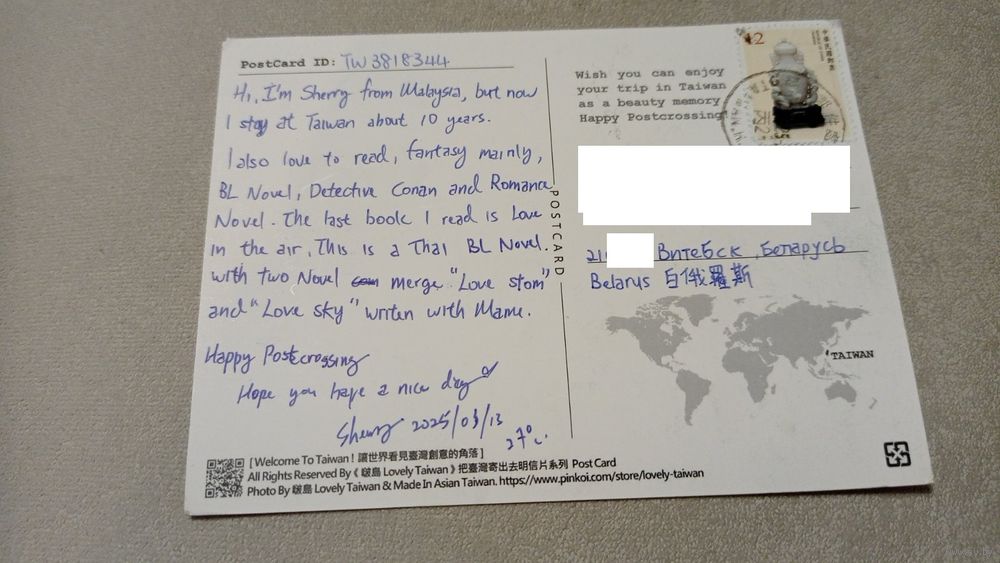 PostCard ID: TW3818344
Hi, I'm Sherry from Malaysia, but now
I stay at Taiwan about 10 years.
I also love to read, fantasy mainly,
BL Novel, Detective Conan and Romance
Novel. The last book I read is Love
in the air. This is a Thai BL Novel.
with two Novel merge "Love stom"
and "Love sky" writen with Mame.
Happy Postcrossing
Hope you have a nice day
Sherry 2025/03/13
27°c.
POSTCARD
12
中華民國郵票
Wish you can enjoy
your trip in Taiwan
as a beauty memory
Happy Postcrossing
21 Витебск, Беларусь
Belarus 白俄羅斯
TAIWAN
[ Welcome To Taiwan ! 讓世界看見臺灣創意的角落 ]
All Rights Reserved By《 啵島 Lovely Taiwan 》把臺灣寄出去明信片系列 Post Card
Photo By 啵島 Lovely Taiwan & Made In Asian Taiwan. https://www.pinkoi.com/store/lovely-taiwan